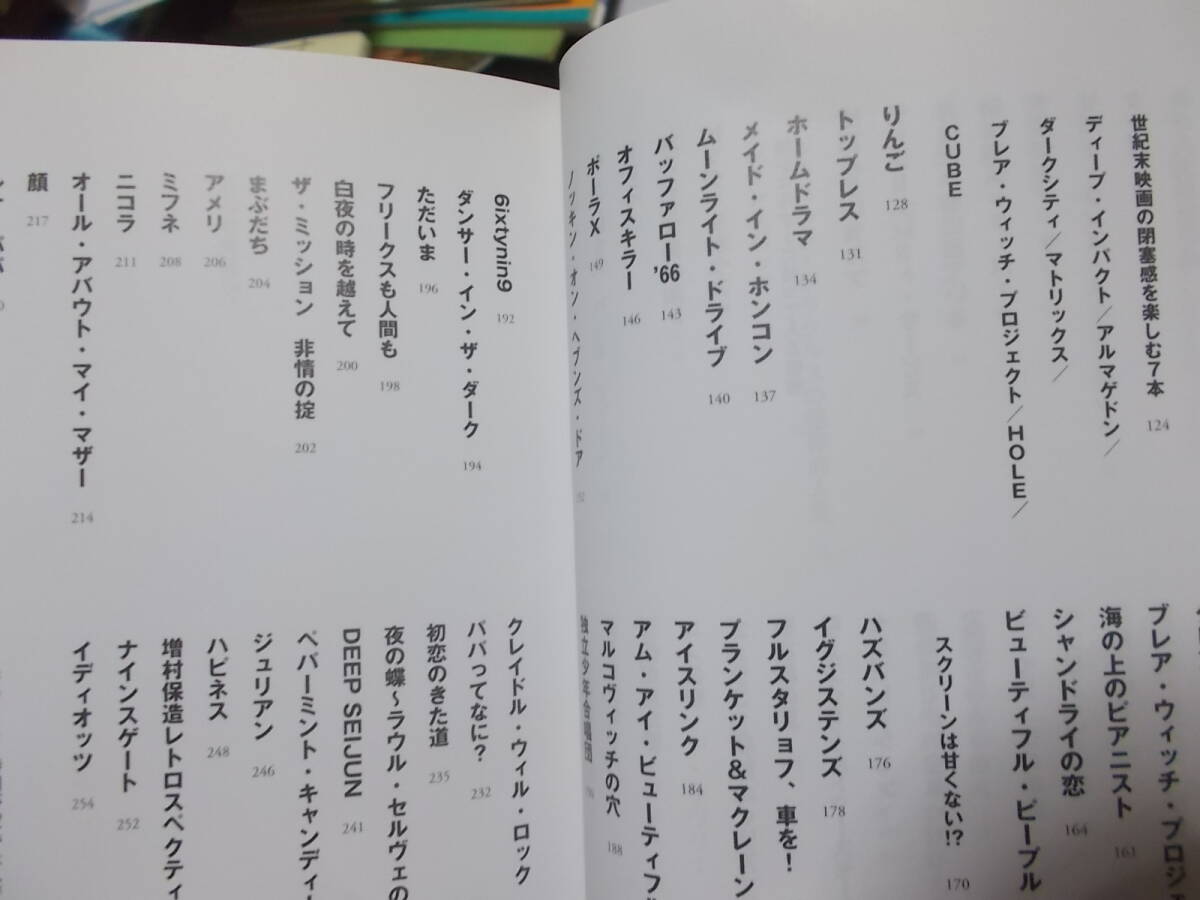 世紀末映画の閉塞感を楽しむ7本 124
ディープ・インパクト／アルマゲドン／
ダークシティ／マトリックス／
ブレア・ウィッチ・プロジェクト／HOLE／
CUBE
りんご 128
トップレス 131
ホームドラマ 134
メイド・イン・ホンコン 137
ムーンライト・ドライブ 140
バッファロー'66 143
オフィスキラー 146
ポーラX 149
ノッキン・オン・ヘブンズ・ドア
ブレア・ウィッチ・プロジェ
海の上のピアニスト 161
シャンドライの恋 164
ビューティフル・ピープル
スクリーンは甘くない!? 170
ハズバンズ 176
イグジステンズ 178
フルスタリョフ、車を！
プランケット&マクレーン
アイスリンク 184
アム・アイ・ビューティフ
マルコヴィッチの穴 188
独立少年合唱団
6ixtynin9 192
ダンサー・イン・ザ・ダーク 194
ただいま 196
フリークスも人間も 198
白夜の時を越えて 200
ザ・ミッション 非情の掟 202
まぶだち 204
アメリ 206
ミフネ 208
ニコラ 211
オール・アバウト・マイ・マザー 214
顔 217
クレイドル・ウィル・ロック
パパってなに? 232
初恋のきた道 235
夜の蝶〜ラウル・セルヴェの
DEEP SEIJUN 241
ペパーミント・キャンディ
ジュリアン 246
ハピネス 248
増村保造レトロスペクティ
ナインスゲート 252
イディオッツ 254